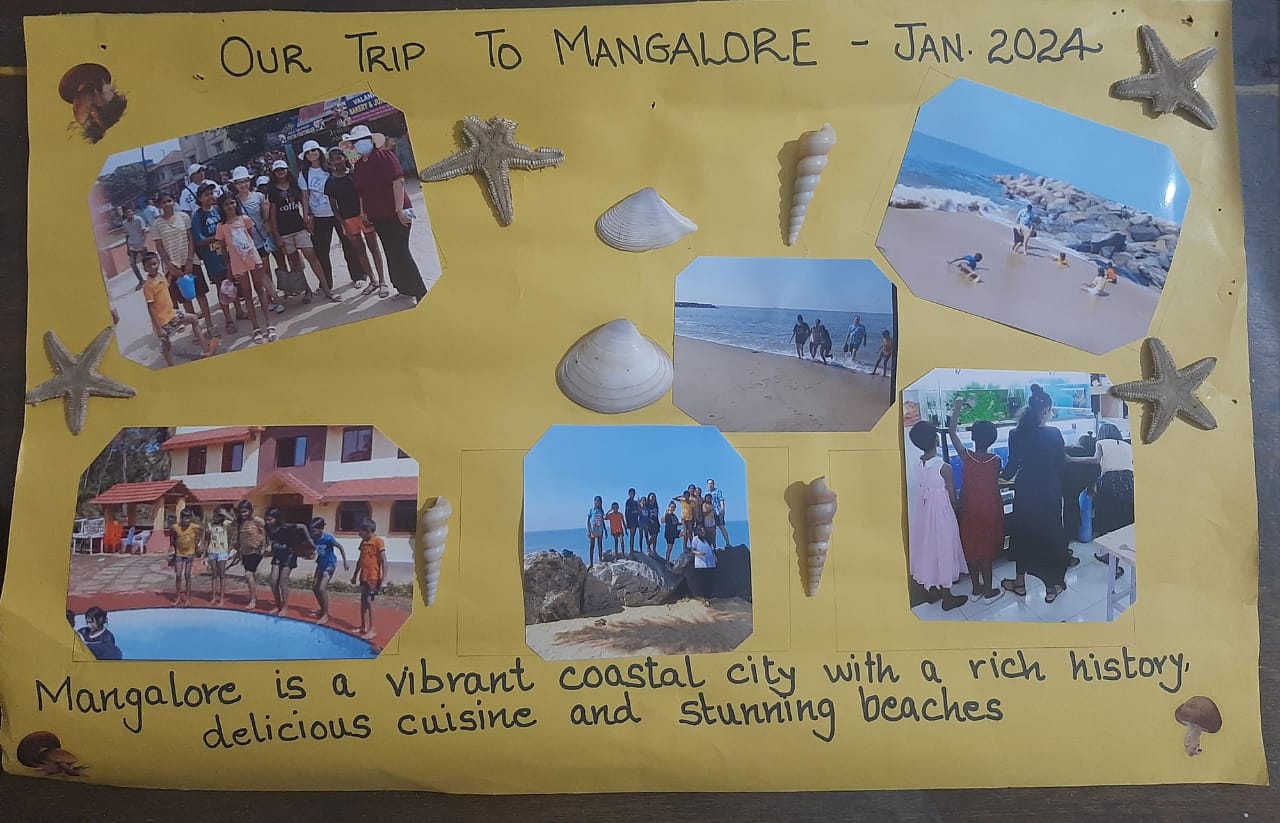 OUR TRIP TO MANGALORE - JAN. 2024
BAKERY & JU
Mangalore is a vibrant coastal city with a rich history,
delicious cuisine and stunning beaches